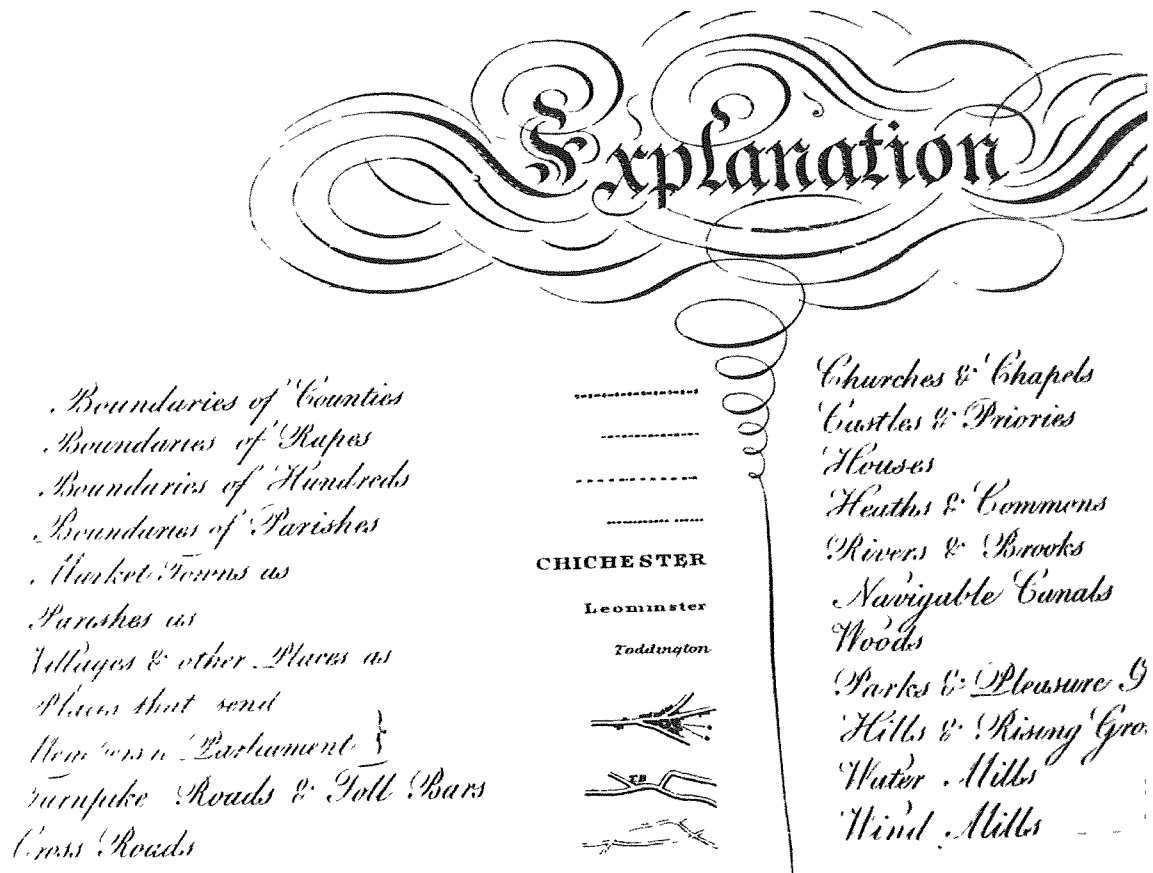 Explanation
Boundaries of Counties
Boundaries of Rapes
Boundaries of Hundreds
Boundaries of Parishes
Market Towns as CHICHESTER
Parishes as Leominster
Villages & other Places as Toddington
Places that send
Members to Parliament
Turnpike Roads & Toll Bars T.B
Cross Roads
Churches & Chapels
Castles & Priories
Houses
Heaths & Commons
Rivers & Brooks
Navigable Canals
Woods
Parks & Pleasure G
Hills & Rising Gro
Water Mills
Wind Mills